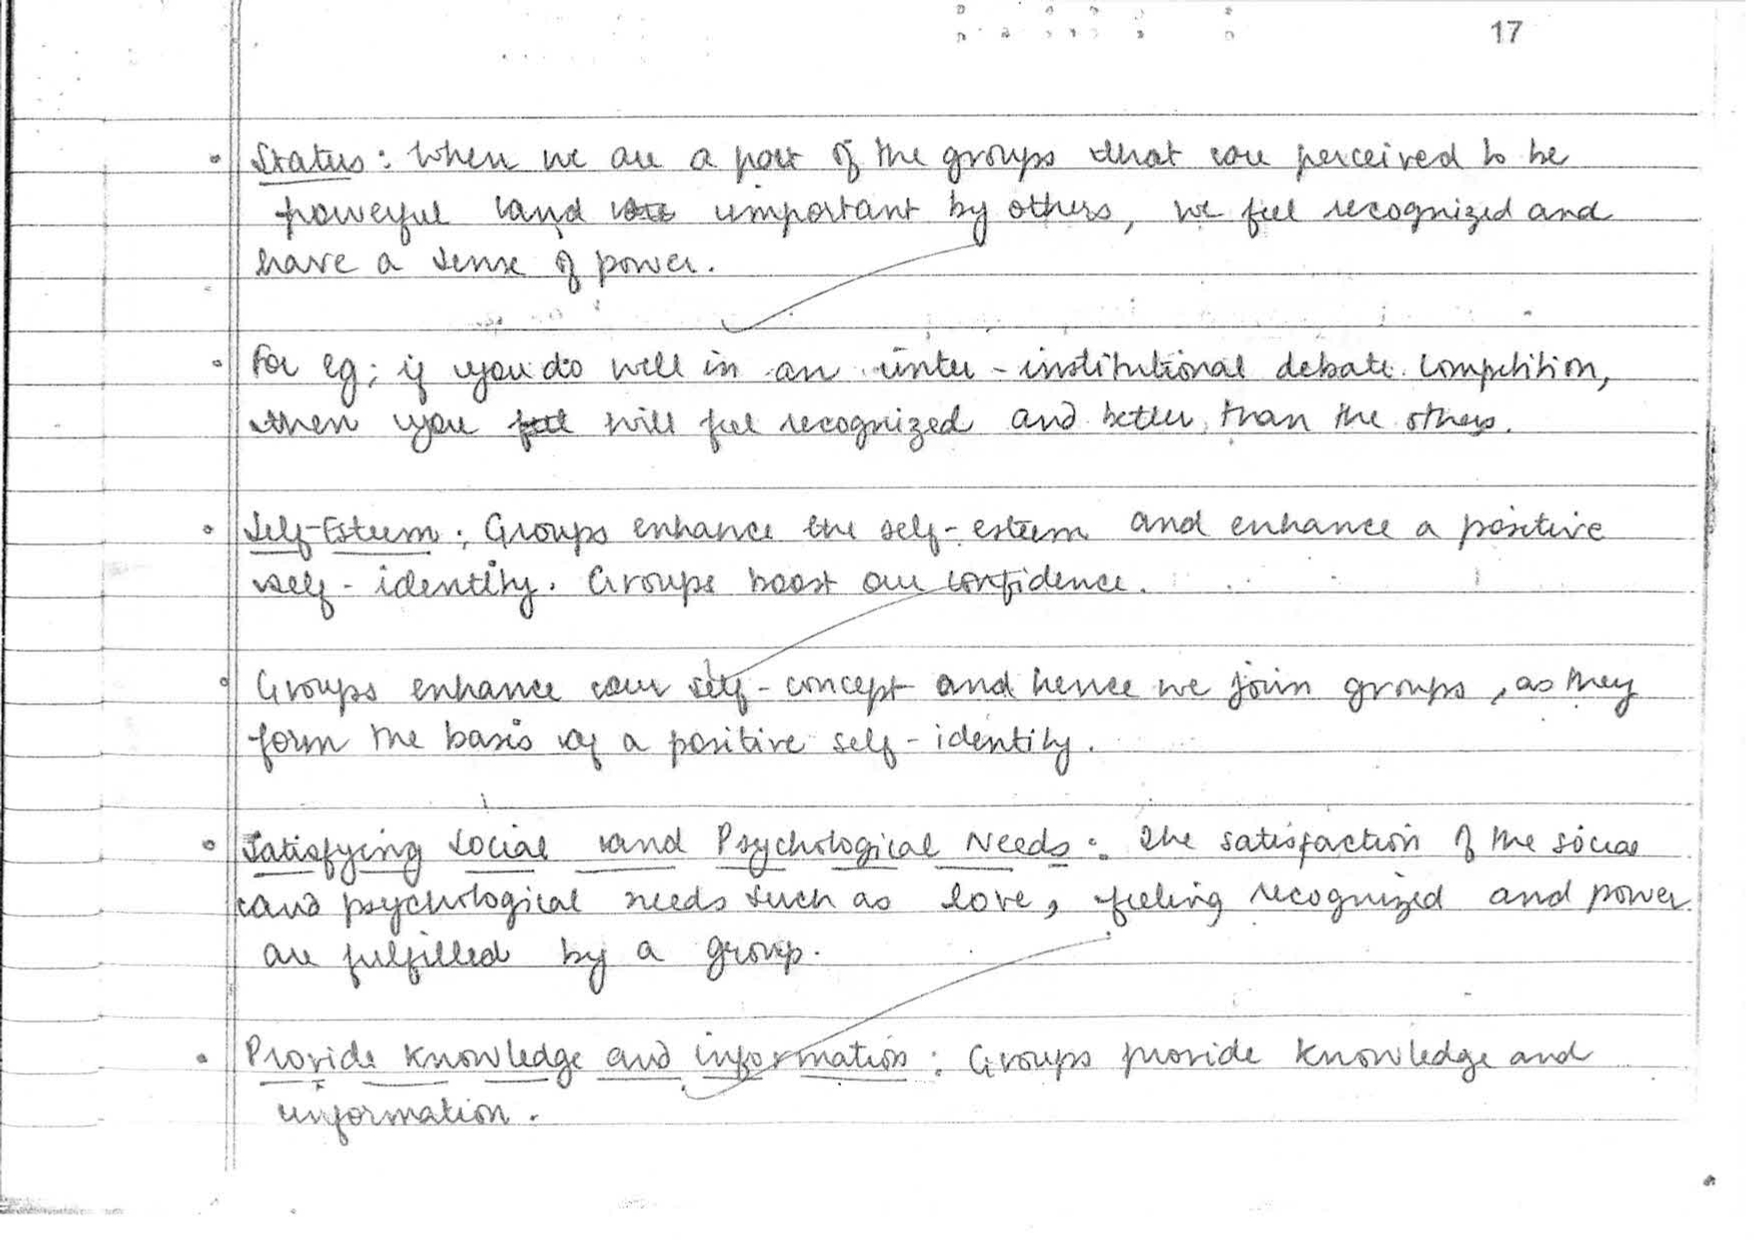 17
• Status : When we are a part of the groups that are perceived to be
powerful and important by others, we feel recognized and
have a sense of power.
• For eg; if you do well in an inter-institutional debate competition,
then you feel will feel recognized and better than the others.
• Self-Esteem : Groups enhance the self-esteem and enhance a positive
self-identity. Groups boost our confidence.
• Groups enhance our self-concept and hence we join groups, as they
form the basis of a positive self-identity.
• Satisfying Social and Psychological Needs : The satisfaction of the social
and psychological needs such as love, feeling recognized and power
are fulfilled by a group.
• Provide knowledge and information : Groups provide knowledge and
information.